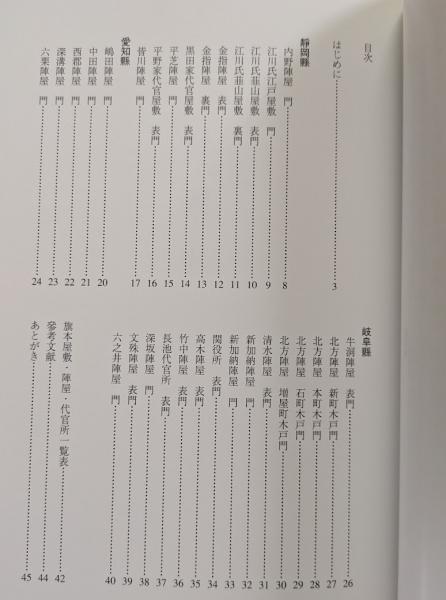 目次
はじめに 3
靜岡縣
内野陣屋 門 8
江川氏江戸屋敷 門 9
江川氏韮山屋敷 表門 10
江川氏韮山屋敷 裏門 11
金指陣屋 表門 12
金指陣屋 裏門 13
黒田家代官屋敷 表門 14
平芝陣屋 門 15
平野家代官屋敷 表門 16
皆川陣屋 門 17
愛知縣
嶋田陣屋 門 20
中田陣屋 門 21
西郡陣屋 門 22
深溝陣屋 門 23
六栗陣屋 門 24
岐阜縣
牛洞陣屋 表門 26
北方陣屋 新町木戸門 27
北方陣屋 本町木戸門 28
北方陣屋 石町木戸門 29
北方陣屋 増屋町木戸門 30
清水陣屋 表門 31
新加納陣屋 門 32
新加納陣屋 門 33
関役所 表門 34
高木陣屋 表門 35
竹中陣屋 表門 36
長池代官所 表門 37
深坂陣屋 門 38
文殊陣屋 表門 39
六之井陣屋 門 40
旗本屋敷・陣屋・代官所一覧表 42
參考文献 44
あとがき 45